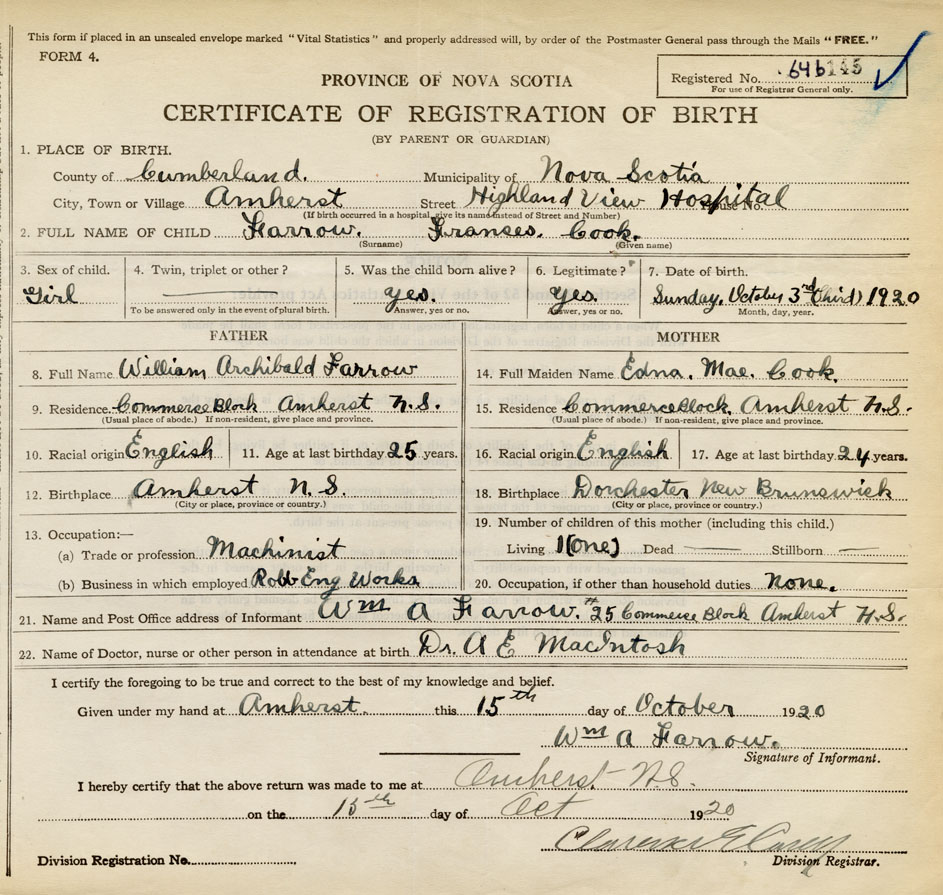 This form if placed in an unsealed envelope marked "Vital Statistics" and properly addressed will, by order of the Postmaster General pass through the Mails "FREE."
FORM 4.
PROVINCE OF NOVA SCOTIA
Registered No. 646145
For use of Registrar General only.
CERTIFICATE OF REGISTRATION OF BIRTH
(BY PARENT OR GUARDIAN)
1. PLACE OF BIRTH.
County of Cumberland. Municipality of Nova Scotia
City, Town or Village Amherst Street Highland View Hospital House No.
(If birth occurred in a hospital, give its name instead of Street and Number)
2. FULL NAME OF CHILD Farrow. Franses. Cook.
(Surname) (Given name)
3. Sex of child. 4. Twin, triplet or other? 5. Was the child born alive? 6. Legitimate? 7. Date of birth.
Girl yes. Yes. Sunday, October 3rd (third) 1920
To be answered only in the event of plural birth. Answer, yes or no. Answer, yes or no. Month, day, year.
FATHER MOTHER
8. Full Name William Archibald Farrow 14. Full Maiden Name Edna. Mae. Cook.
9. Residence Commerce Block Amherst N.S. 15. Residence Commerce Block, Amherst N.S.
(Usual place of abode.) If non-resident, give place and province. (Usual place of abode.) If non-resident, give place and province.
10. Racial origin English 11. Age at last birthday 25 years. 16. Racial origin English 17. Age at last birthday 24 years.
12. Birthplace Amherst N.S. 18. Birthplace Dorchester New Brunswick
(City or place, province or country.) (City or place, province or country.)
13. Occupation:— 19. Number of children of this mother (including this child.)
(a) Trade or profession Machinist Living 1(one) Dead Stillborn
(b) Business in which employed Robb Eng Works 20. Occupation, if other than household duties none.
21. Name and Post Office address of Informant Wm A Farrow. #25 Commerce Block Amherst N.S.
22. Name of Doctor, nurse or other person in attendance at birth Dr. A E MacIntosh
I certify the foregoing to be true and correct to the best of my knowledge and belief.
Given under my hand at Amherst. this 15th day of October 1920
Wm A Farrow.
Signature of Informant.
I hereby certify that the above return was made to me at Amherst N.S.
on the 15th day of Oct 1920
Clarence E
Division Registration No. Division Registrar.